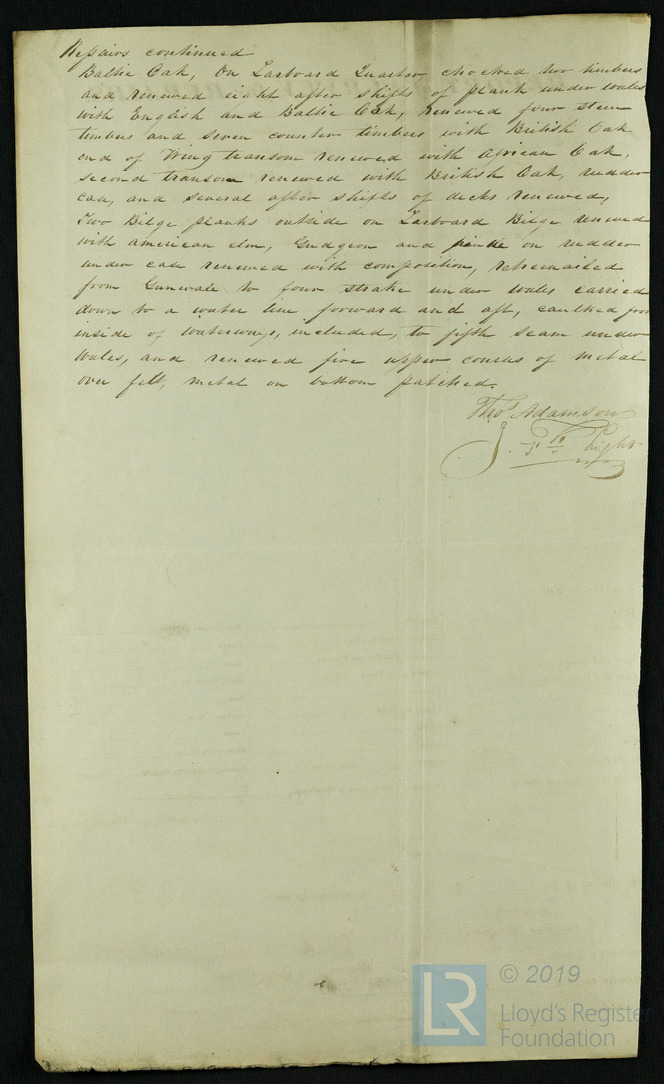 Repairs continued
Baltic Oak, On Larboard Quarter chocked two timbers
and renewed eight after shifts of plank under wales
with English and Baltic Oak, renewed four stern
timbers and seven counter timbers with British Oak
end of Wing transom renewed with African Oak,
second transom renewed with British Oak, rudder
case, and several after shifts of decks renewed,
Two Bilge planks outside on Larboard Bilge renewed
with american elm, Gudgeon and on rudder
under case renewed with composition, retreenailed
from Gunwale to four strake under wales carried
down to a water line forward and aft, caulked from
inside of waterways, included, to fifth seam under
wales, and renewed five upper courses of metal
over felt, metal on bottom patched.
Thos Adamson
J.
© 2019
LR
Lloyd's Register
Foundation